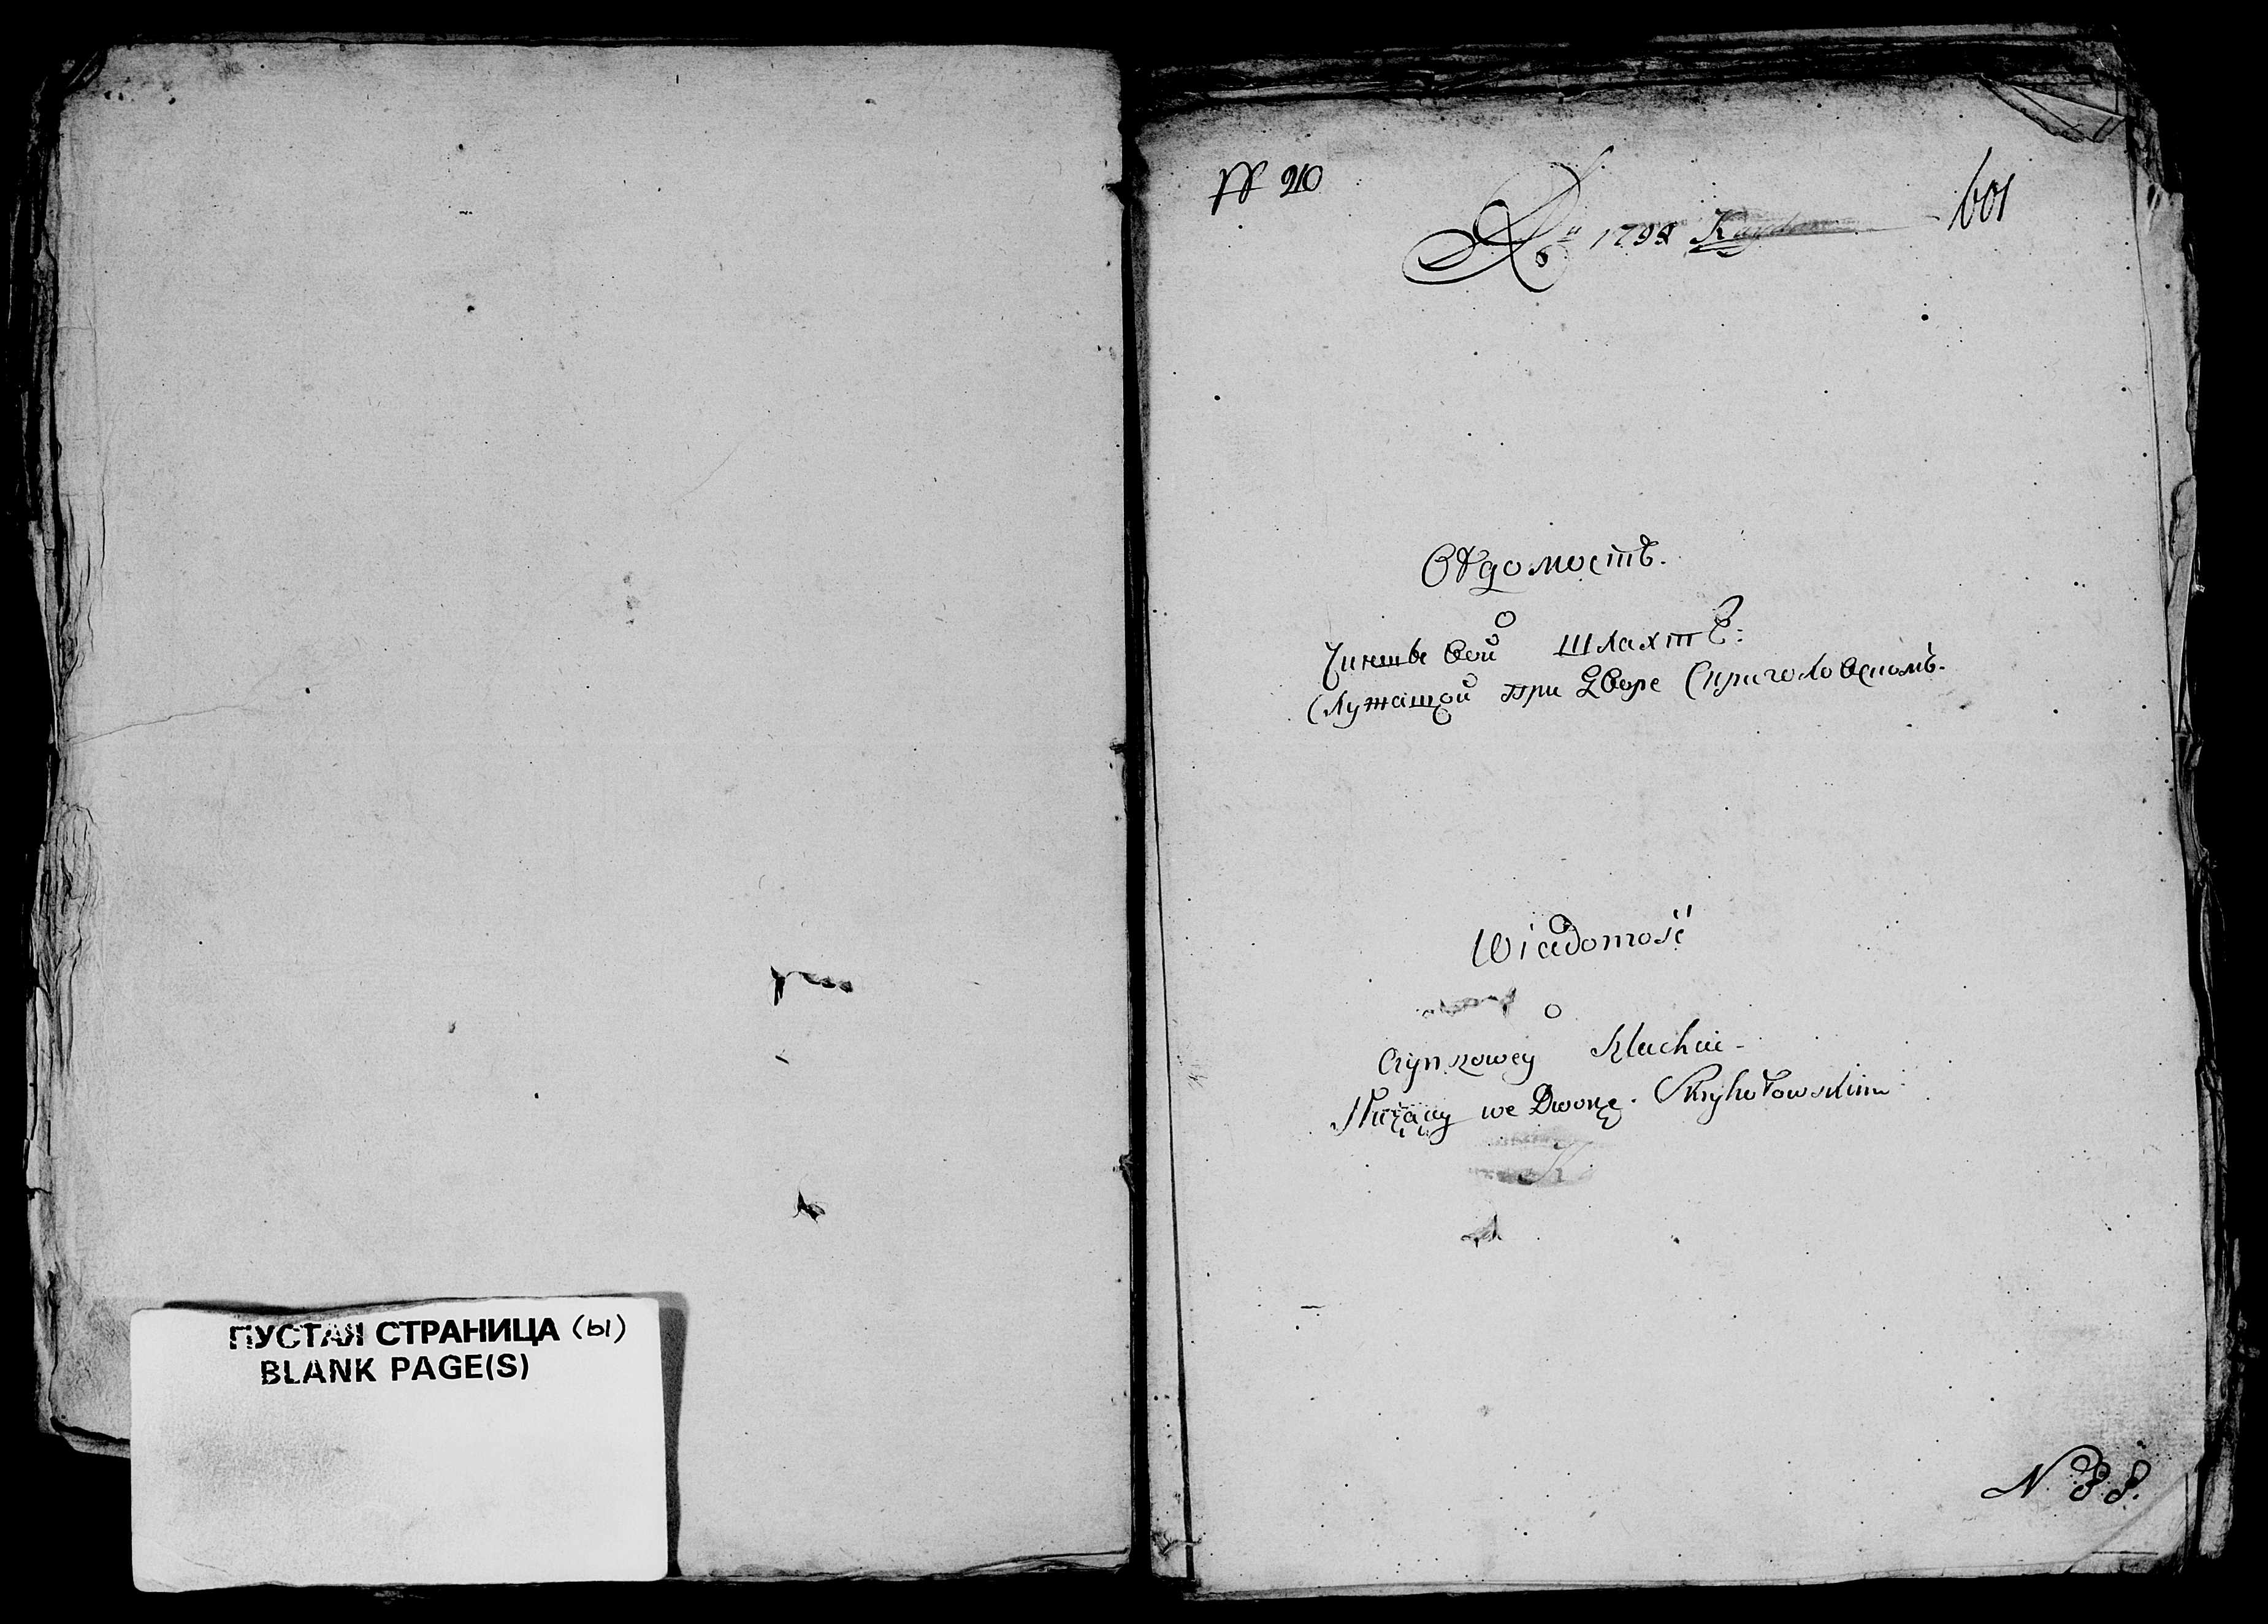 ПУСТАЯ СТРАНИЦА (ы)
BLANK PAGE(S)
№ 210
601
1798
Вѣдомость.
О
Чиншевой Шлахтѣ:
Служащой при Дворе Скриголовскомъ.
Wiadomość
O
Czynszowey Szlachcie
Służący we Dworze Skryhołowskim
N. 38.